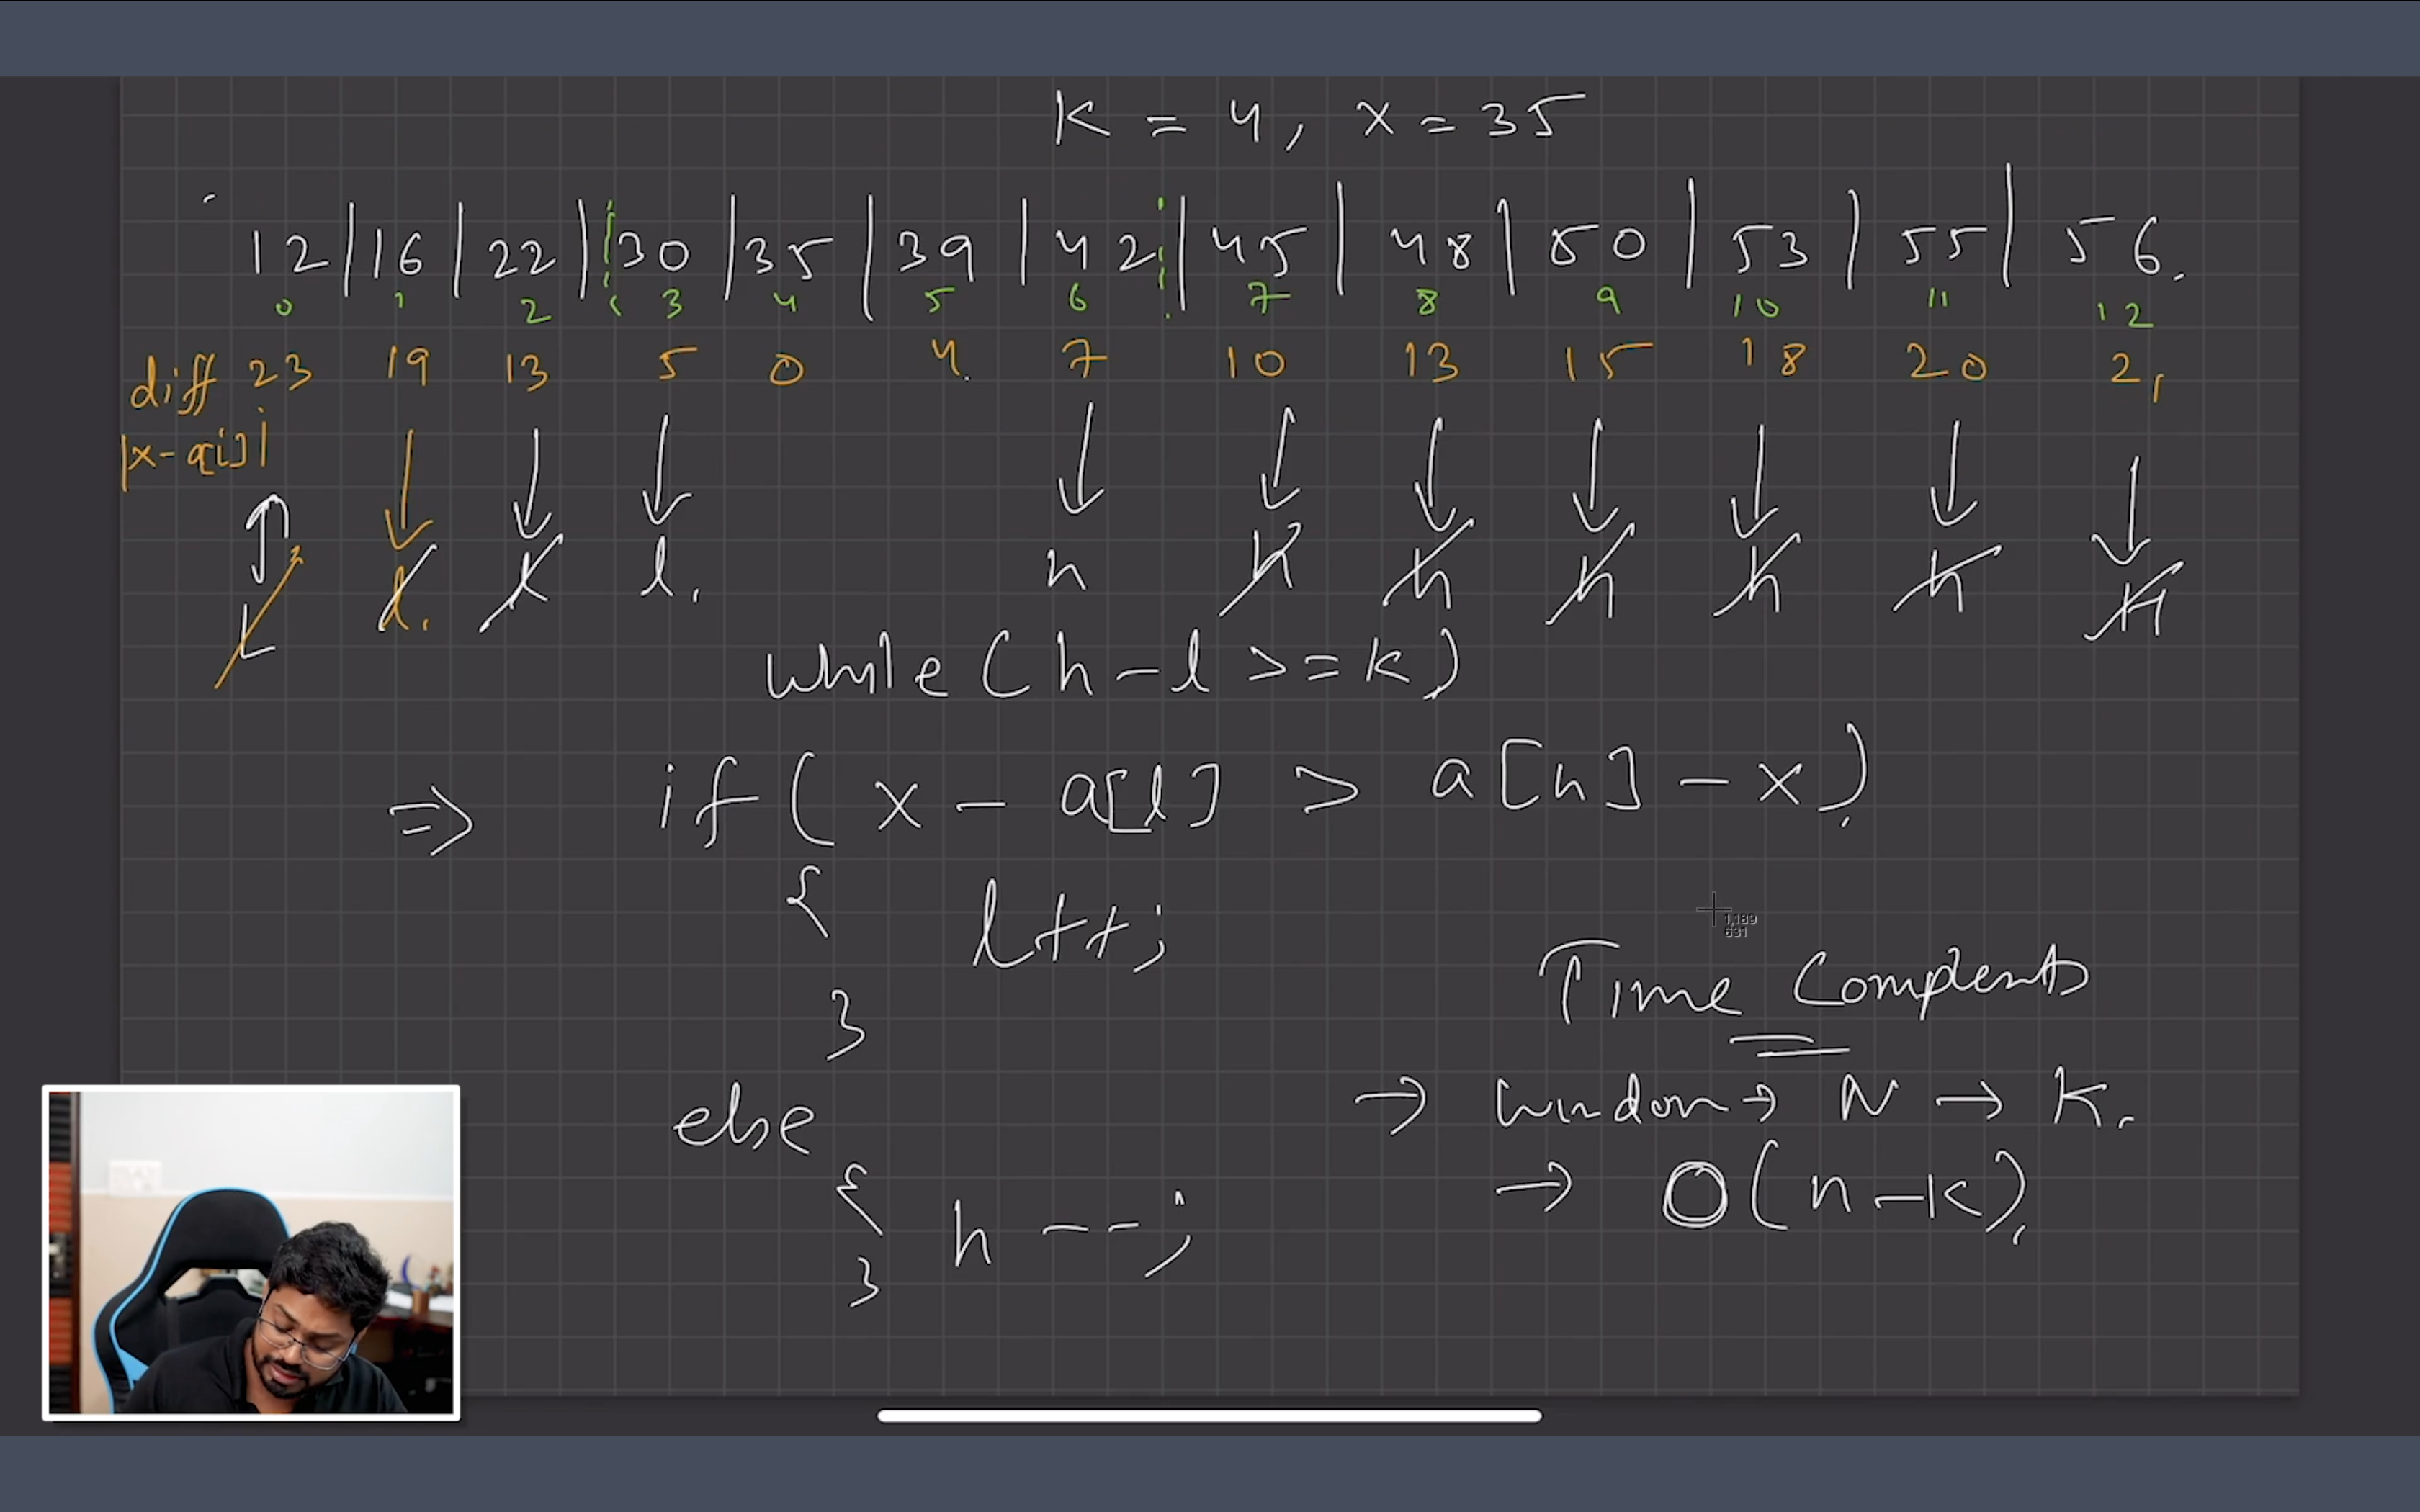 K = 4, x = 35
12 | 16 | 22 | 30 | 35 | 39 | 42 | 45 | 48 | 50 | 53 | 55 | 56.
0 1 2 3 4 5 6 7 8 9 10 11 12
diff 23 19 13 5 0 4. 7 10 13 15 18 20 21
|x-a[i]|
L l. l l. h h h h h h H
while (h-l >= k)
=> if (x - a[l] > a[h] - x)
{ l++;
}
else
{ h--;
}
1,189
631
Time
→ window → N → K.
→ O(n-k).